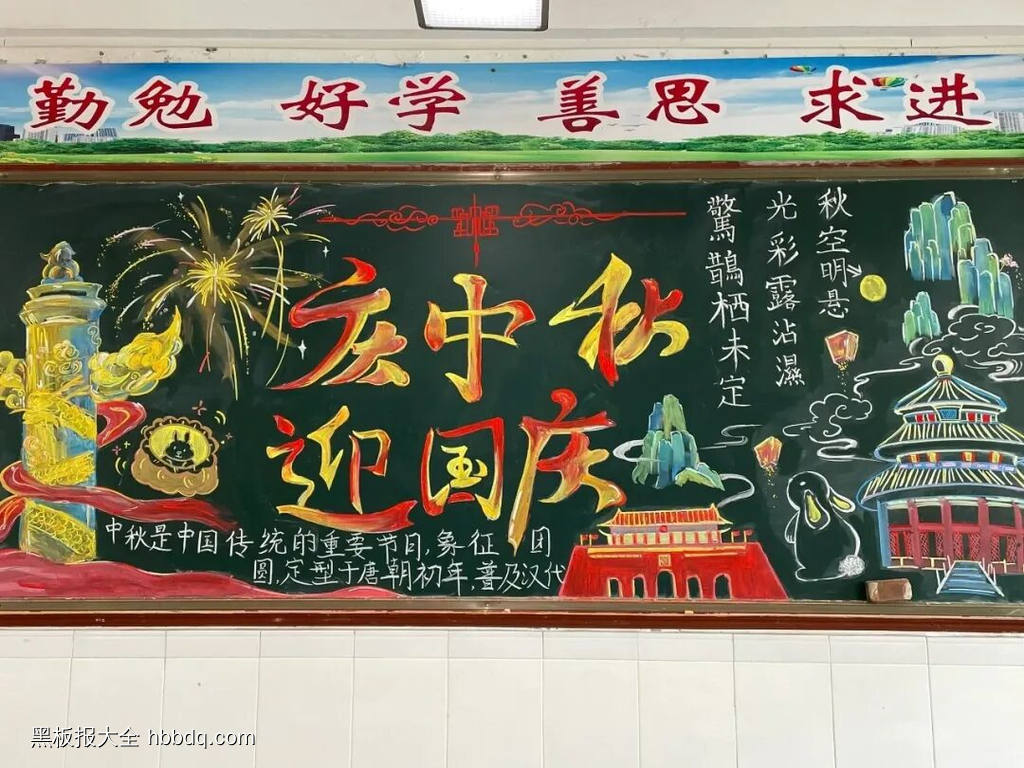 勤勉 好学 善思 求进
庆中秋
迎国庆
秋空明悬
光彩露沾濕
驚鵲栖未定
中秋是中国传统的重要节日,象征 团
圆,定型于唐朝初年,普及汉代
黑板报大全 hbbdq.com